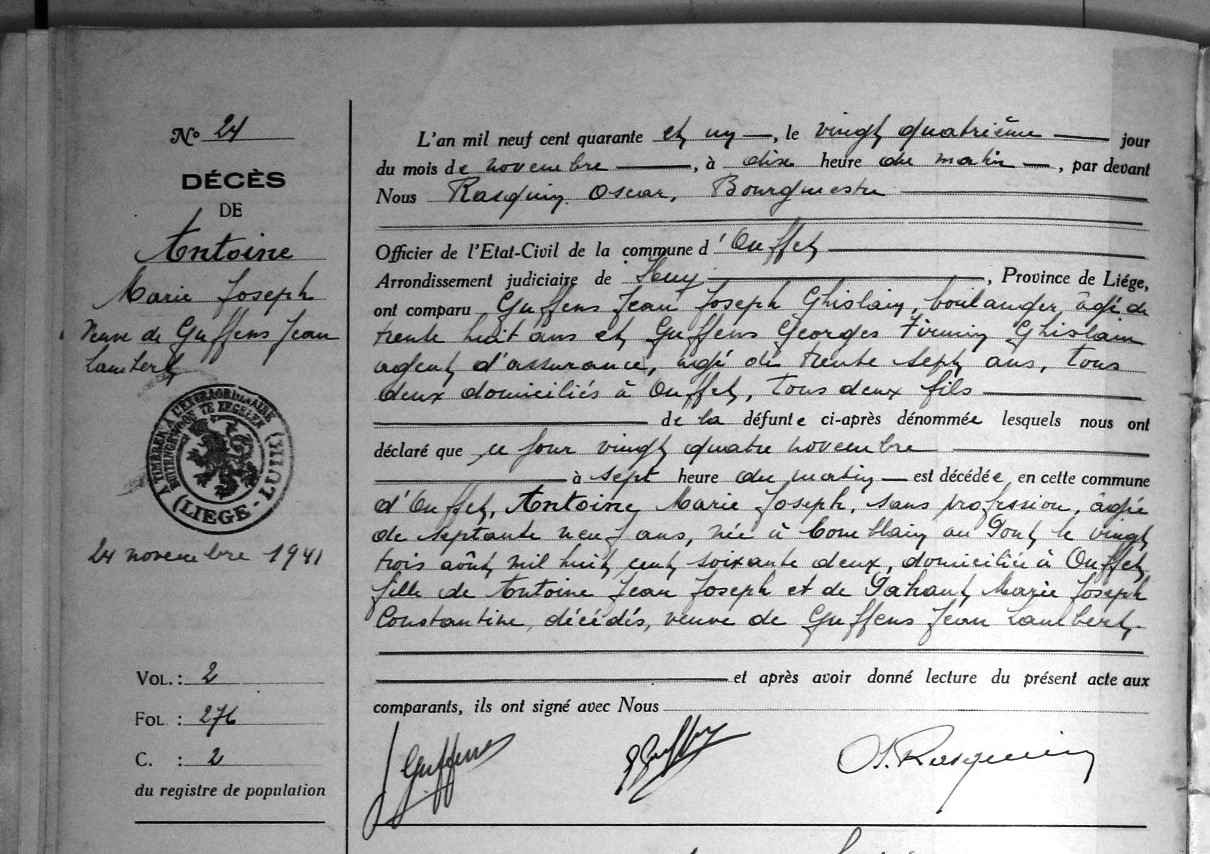 N° 24
DÉCÈS
DE
Antoine
Marie Joseph
Veuve de Guffens Jean
Lambert
A TIMBRER A L'EXTRAORDINAIRE
BUITENGEWOON TE ZEGELEN
(LIEGE - LUIK)
24 novembre 1941
VOL. : 2
FOL : 276
C. : 2
du registre de population
L'an mil neuf cent quarante et un, le vingt quatrième jour
du mois de novembre, à dix heure du matin, par devant
Nous Rasquin Oscar, Bourgmestre
Officier de l'Etat-Civil de la commune d'Ouffet
Arrondissement judiciaire de Huy, Province de Liége,
ont comparu Guffens Jean Joseph Ghislain, boulanger, âgé de
trente huit ans et Guffens Georges Firmin Ghislain
agent d'assurance, âgé de trente sept ans, tous
deux domiciliés à Ouffet, tous deux fils
de la défunte ci-après dénommée lesquels nous ont
déclaré que ce jour vingt quatre novembre
à sept heure du matin est décédée, en cette commune
d'Ouffet, Antoine Marie Joseph, sans profession, âgée
de septante neuf ans, née à Comblain au Pont le vingt
trois août mil huit cent soixante deux, domiciliée à Ouffet,
fille de Antoine Jean Joseph et de Marie Joseph
Constantine, décédés, veuve de Guffens Jean Lambert.
et après avoir donné lecture du présent acte aux
comparants, ils ont signé avec Nous
J Guffens
O. Rasquin